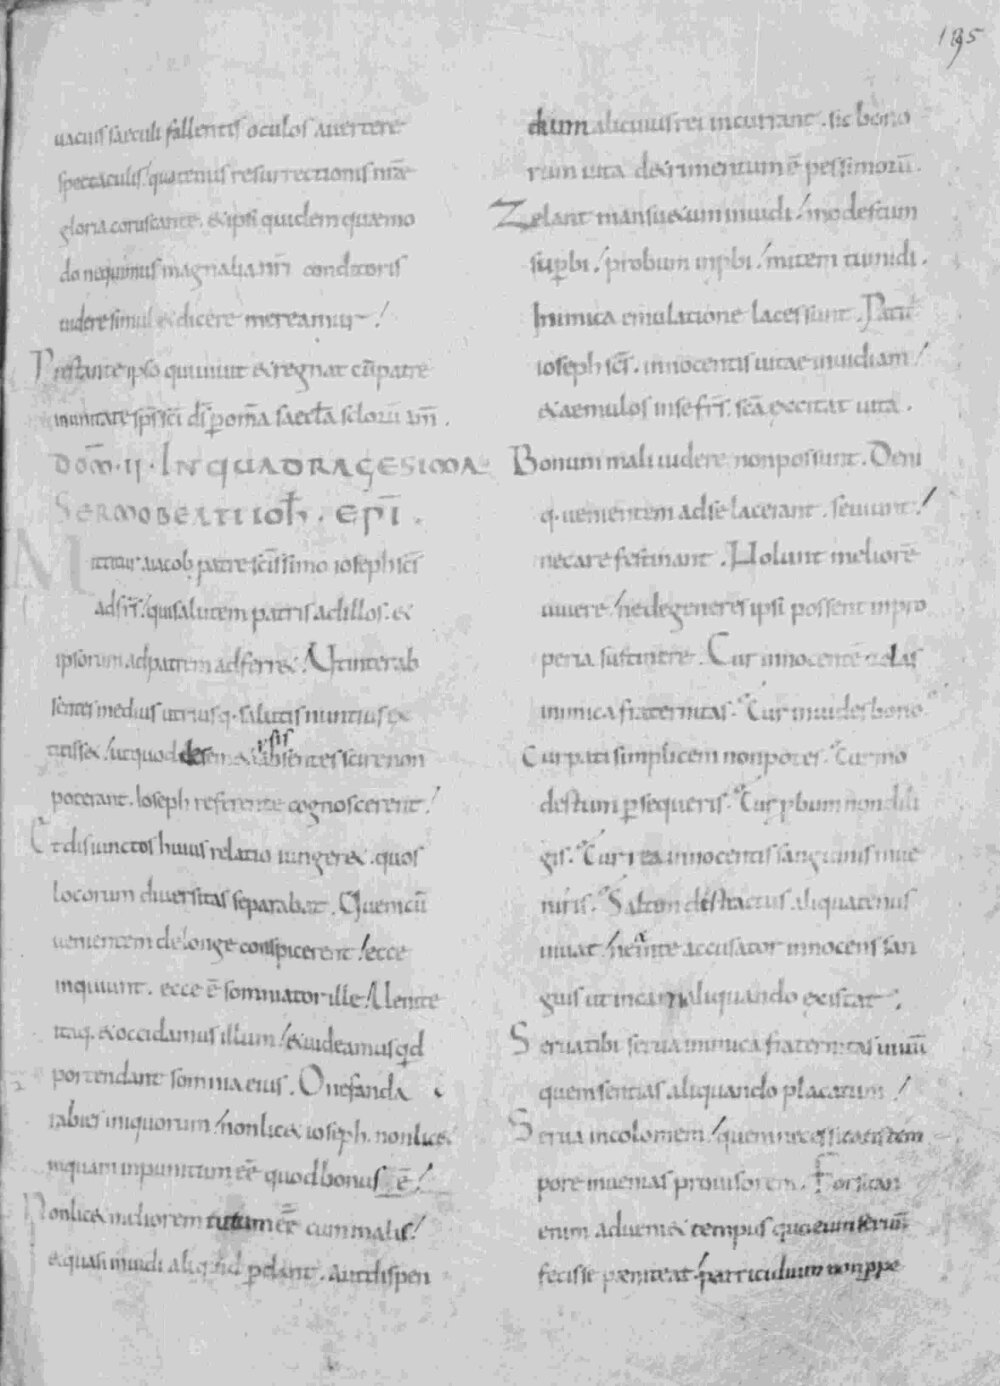 195
uacuis saeculi fallentis oculos auertere
spectaculis / quatenus resurrectionis nr̄ae
gloria coruscante. & ipsi quidem quaemo
do nequimus magnalia nr̄i conditoris
uidere simul & dicere mereamur /
Prestante ipso qui uiuit & regnat cū patre
in unitate sp̄s sc̄i d̄s p̄ om̄a saecl̄a sclorū am̄.
Dom̄. II. IN QUADRAGESIMA
SERMO BEATI IOH̄. EP̄I.
Mittitur a iacob patre sc̄issimo ioseph sc̄s
ad fr̄s / qui salutem patris ad illos. &
ipsorum ad patrem adferr&. Ut inter ab
sentes medius utriusq. salutis nuntius ex
titiss& / ut quod de sem& ipsis absentes scire non
poterant. Ioseph referente cognoscerent /
Et disiunctos huius relatio iunger&. quos
locorum diuersitas separabat. Quem cū
uenientem de longe conspicerent / ecce
inquiunt. ecce ē somniator ille / Uenite
itaq. & occidamus illum / & uideamus qd
portendant somnia eius. O nefanda
rabies iniquorum / non lic& ioseph. non lic&
inquam inpunitum eē quod bonus ē /
Non lic& meliorem tutum eē cum malis /
& quasi inuidi aliquid perdant. Aut dispen
dium alicuius rei incurrant. sic bono
rum uita detrimentum ē pessimorū.
Zelant mansu&um inuidi / modestum
sup̄bi / probum inp̄bi / mitem tumidi.
Inimica emulatione lacessunt. Patit
ioseph sc̄s. innocentis uitae inuidiam /
& aemulos in se fr̄s. sc̄a excitat uita.
Bonum mali uidere non possunt. Deni
q. uenientem ad se lacerant. seuiunt /
necare festinant. Nolunt meliorē
uiuere / ne degeneres ipsi possent inpro
peria sustinere. Cur innocentē zelas
inimica fraternitas. Cur inuides bono
Cur pati simplicem non potes. Cur mo
destum p̄sequeris. Cur p̄bum non dili
gis. Cur rea innocentis sanguinis inue
niris. Saltim distractus aliquatenus
uiuat / ne ante accusator innocens san
guis ut incarn aliquando existat.
Serua tibi serua inimica fraternitas uiuū
quem sentias aliquando placatum /
Serua incolomem / quem necessitatis tem
pore inuenias prouisorem. Forsitan
enim adueni& tempus quo eum seruū
fecisse paeniteat / parricidium non p̄pe